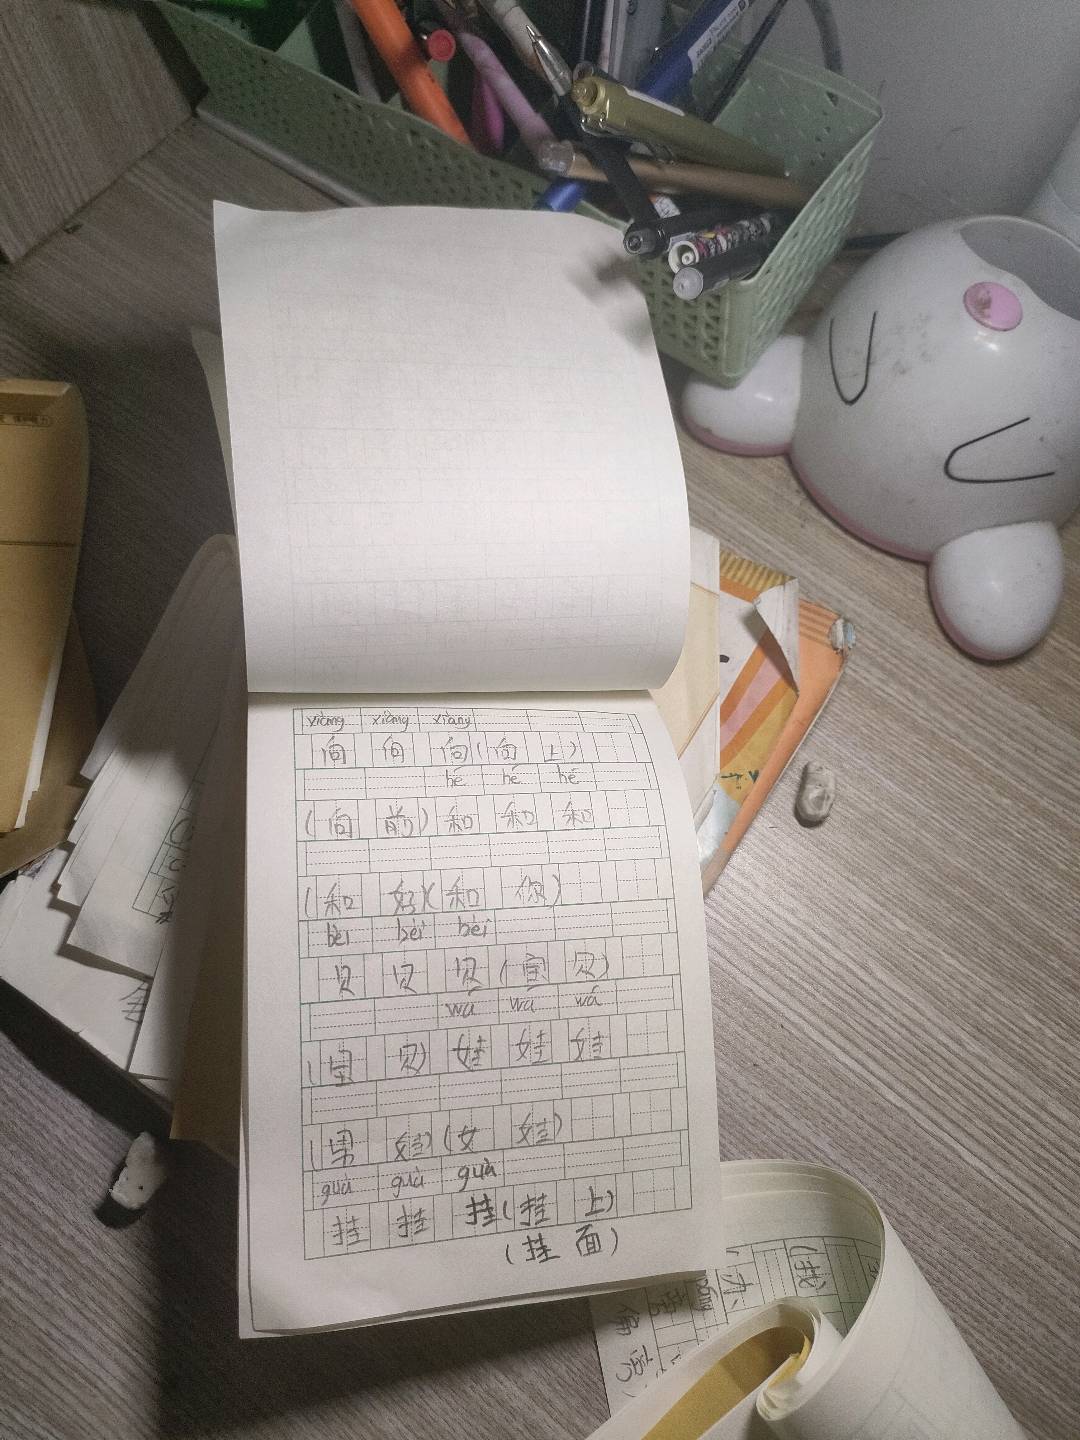 xiàng xiàng xiàng
向 向 向(向 上)
hé hé hé
(向 前) 和 和 和
(和 好)(和 你)
bèi bèi bèi
贝 贝 贝 (宝 贝)
wá wá wá
(宝 贝) 娃 娃 娃
(男 娃)(女 娃)
guà guà guà
挂 挂 挂(挂 上)
(挂 面)
(我